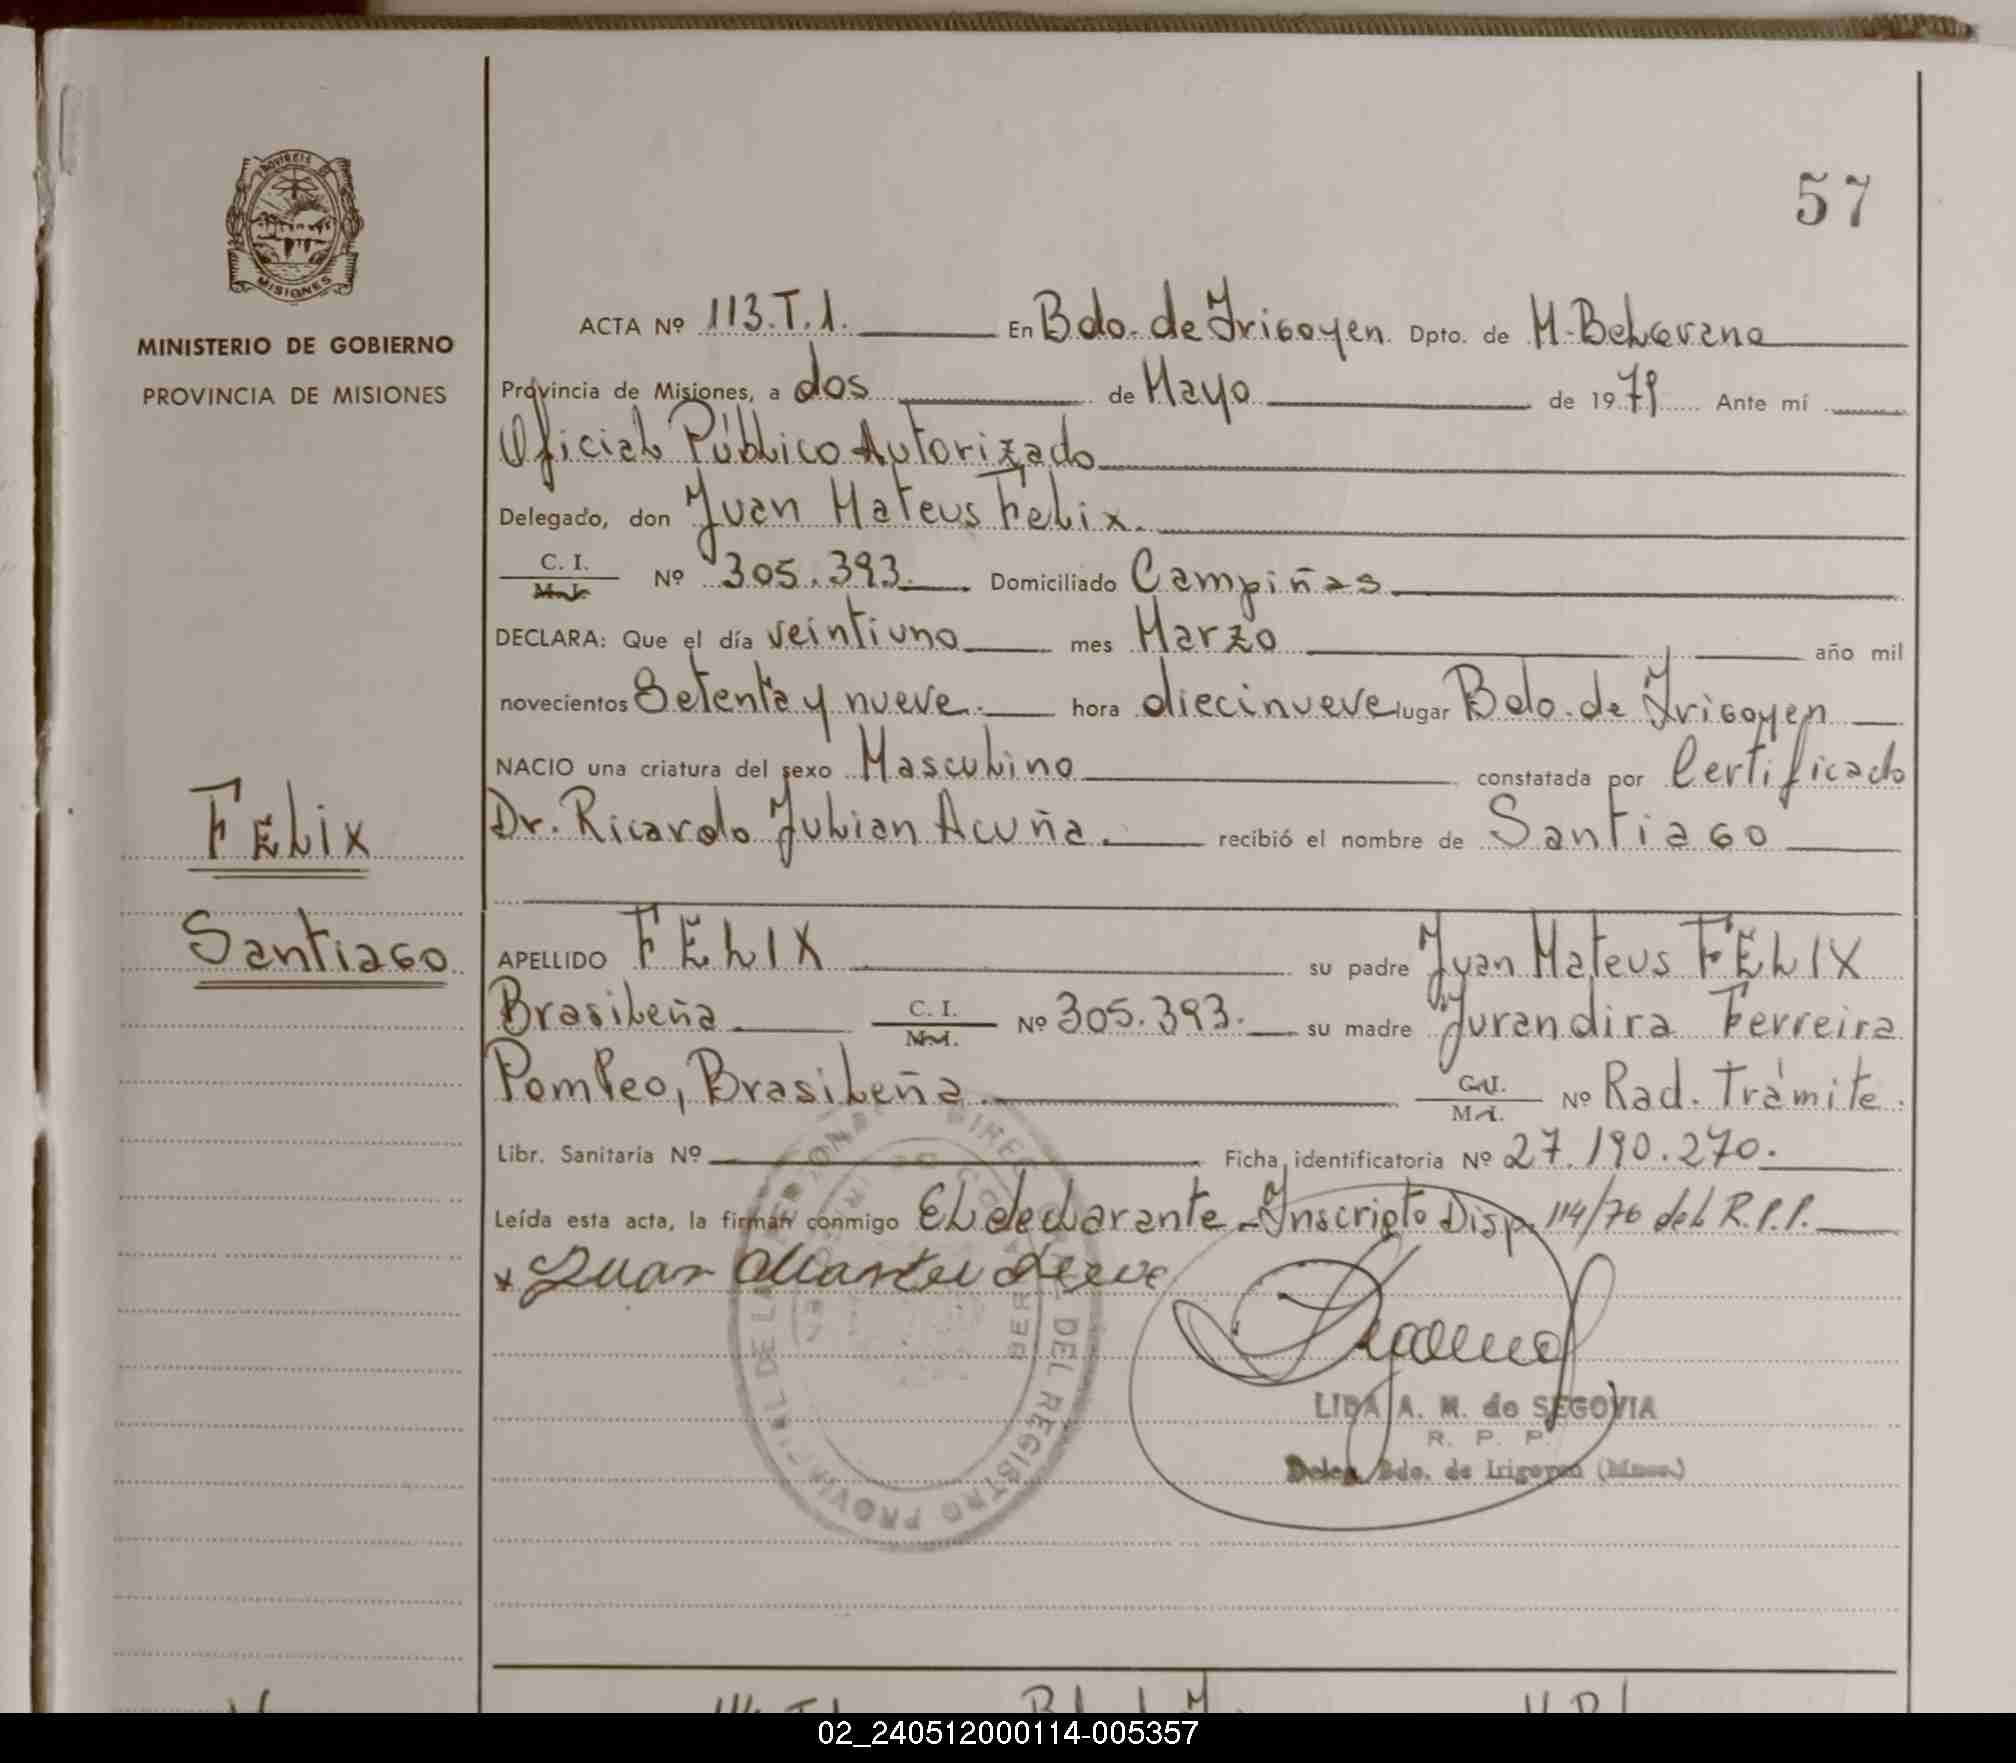 57
PROVINCIA
MISIONES
MINISTERIO DE GOBIERNO
PROVINCIA DE MISIONES
Felix
Santiago
ACTA Nº 113.T.1. En Bdo. de Irigoyen. Dpto. de M. Belgrano
Provincia de Misiones, a dos de Mayo de 1979 Ante mí
Oficial Público Autorizado
Delegado, don Juan Mateus Felix.
C. I. Nº 305.393. Domiciliado Campiñas
M. I.
DECLARA: Que el día veintiuno mes Marzo año mil
novecientos Setenta y nueve. hora diecinueve lugar Bdo. de Irigoyen
NACIO una criatura del sexo Masculino constatada por Certificado
Dr. Ricardo Julian Acuña. recibió el nombre de Santiago
APELLIDO FELIX su padre Juan Mateus FELIX
Brasileña C. I. Nº 305.393. su madre Jurandira Ferreira
M. I.
Pompeo, Brasileña. C. I. Nº Rad. Trámite.
M. I.
Libr. Sanitaria Nº Ficha identificatoria Nº 27.190.270.
Leída esta acta, la firman conmigo El declarante - Inscripto Disp. 114/76 del R.P.P.
x Juan
LIDA A. M. de SEGOVIA
R. P. P.
Deleg. Bdo. de Irigoyen (Mnes.)
DEL REGISTRO PROVINCIAL DE LAS PERSONAS
02_240512000114-005357